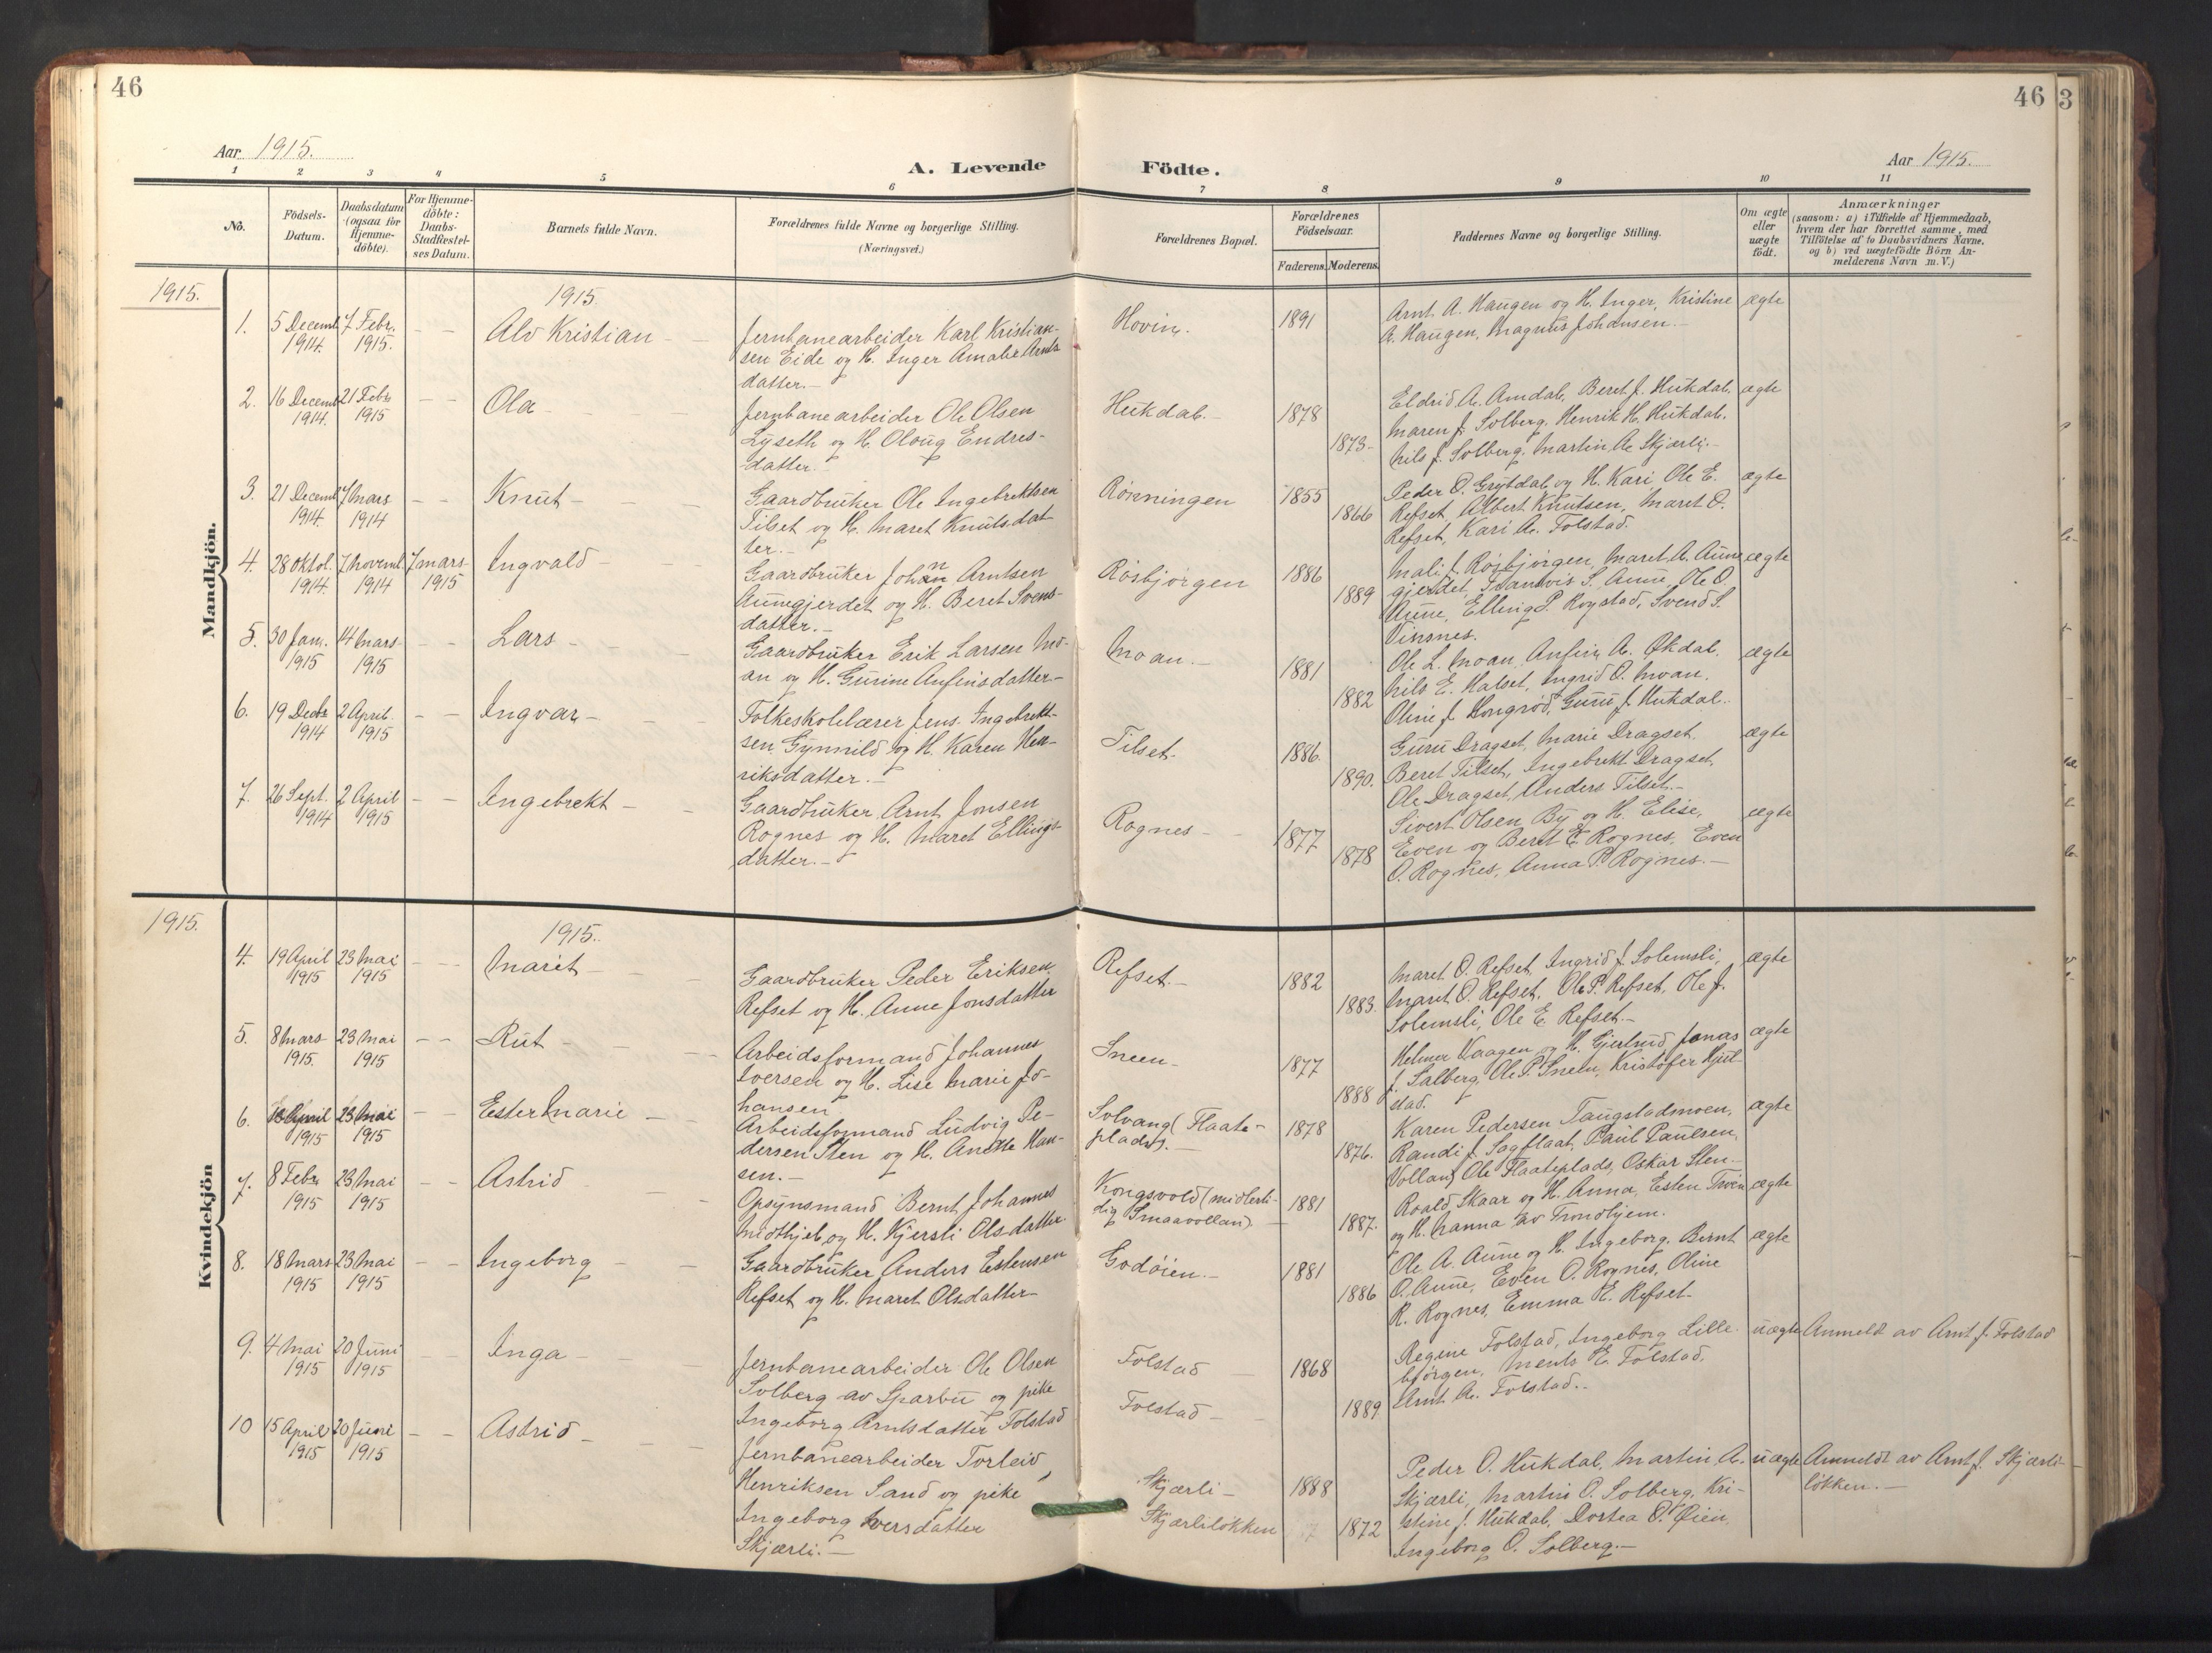 46
46
3
Aar 1915.
A. Levende Födte.
Aar 1915.
1 2 3 4 5 6 7 8 9 10 11
No.
Födsels-
Datum.
Daabsdatum
(ogsaa for
Hjemme-
döbte).
For Hjemme-
döbte:
Daabs-
Stadfæstel-
ses Datum.
Barnets fulde Navn.
Forældrenes fulde Navne og borgerlige Stilling.
(Næringsvei.)
Forældrenes Bopæl.
Forældrenes
Födselsaar.
Faderens. Moderens.
Faddernes Navne og borgerlige Stilling.
Om ægte
eller
uægte
födt.
Anmærkninger
(saasom: a) i Tilfælde af Hjemmedaab,
hvem der har forrettet samme, med
Tilföielse af to Daabsvidners Navne,
og b) ved uægtefödte Börn An-
melderens Navn m. V.)
Mandkjön.
1915.
1915.
1. 5 Decemb. 1914. 7 Febr. 1915. - - Alv Kristian -
Jernbanearbeider Karl Kristian-
sen Eide og H. Inger Amalie Arnts
datter.-
Hovin. 1891
Arnt A. Haugen og H. Inger, Kristine
A. Haugen, Magnus Johansen.-
ægte
2. 16 Decemb. 1914. 21 Febr 1915 - - Ola -
Jernbanearbeider Ole Olsen
Lyseth og H. Oloug Endres-
datter.-
Hukdal.- 1878 1873-
Eldrid A. Amdal, Beret J. Hukdal,
Maren J. Solberg, Henrik H. Hukdal,
Nils J. Solberg, Martin A. Skjærli.-
ægte
3. 21 Decemb. 1914. 7 Mars 1914 - - Knut -
Gaardbruker Ole Ingebrektsen
Tilset og H. Maret Knutsdat
ter.-
Rønningen 1855 1866
Peder O. Grytdal og H. Kari, Ole E.
Refset, Albert Knutsen, Maret O.
Refset, Kari A. Folstad.
ægte
4. 28 Oktob. 1914. 7 Novemb. 1914 7 Mars 1915 Ingvald -
Gaardbruker Johan Arntsen
Aunegjerdet og H. Beret Svens-
datter.-
Røsbjørgen 1886 1889
Mali J. Røsbjørgen, Maret A. Aune
gjerdet, S. Aune, Ole O.
Aune, Elling P. Rogstad, Svend S.
Vinsnes.
ægte
5. 30 Jan. 1915 14 Mars 1915 - - Lars -
Gaardbruker Erik Larsen Mo-
an og H. Gurine Anfinsdatter.-
Moan.- 1881 1882
Ole L. Moan, Anfin A. Økdal,
Nils E. Halset, Ingrid O. Moan,
Oline J. Hongrød, Guru J. Hukdal.
ægte
6. 19 Decbr 1914 2 April 1915 - - Ingvar -
Folkeskolelærer Jens Ingebrekt-
sen Gynnild og H. Karen Hen-
riksdatter.-
Tilset. 1886. 1890.
Guru Dragset, Marie Dragset.
Beret Tilset, Ingebrekt Dragset,
Ole Dragset, Anders Tilset.-
ægte
7. 26 Sept. 1914 2 April 1915 - - Ingebrekt -
Gaardbruker Arnt Jonsen
Rognes og H. Maret Ellings-
datter.-
Rognes - 1877 1878
Sivert Olsen By og H. Elise,
Even og Beret E. Rognes, Even
O. Rognes, Anna P. Rognes.-
ægte
Kvindekjön
1915.
1915.
4. 19 April 1915 23 Mai 1915 - - Marit -
Gaardbruker Peder Eriksen
Refset og H. Anne Jonsdatter
Refset.- 1882 1883.
Maret O. Refset, Ingrid J. Solemsli,
Maret O. Refset, Ole P. Refset, Ole J.
Solemsli, Ole E. Refset.-
ægte
5. 8 Mars 1915. 23 Mai 1915 - - Rut -
Arbeidsformand Johannes
Iversen og H. Lise Marie Jo-
hansen
Sneen- 1877 1888
Helmer Vaagen og H. Gjertrud, Jonas
J. Salberg, Ole P. Sneen, Kristofer Hjul
stad.
ægte
6. April 1915 23 Mai 1915 - - Ester Marie -
Arbeidsformand Ludvig Pe-
dersen Sten og H. Anette Han-
sen.-
Solvang (Flaate-
plads).- 1878 1876.
Karen Pedersen Taugstadmoen,
Randi J. Sagflaat, Paul Paulsen,
Volland, Ole Flaateplads, Oskar Sten.-
ægte
7. 8 Febr 1915 23 Mai 1915 - - Astrid
Opsynsmand Bernt Johannes
Midthjel og H. Kjersti Olsdatter.
Kongsvold (midlerti-
dig Smaavollan). 1881 1887.
Roald Skaar og H. Anna, Esten Træen
og H. Nanna av Trondhjem.
ægte
8. 18 Mars 1915 23 Mai 1915 - - Ingeborg -
Gaardbruker Anders Estensen
Refset og H. Maret Olsdatter-
Godøien.- 1881 1886
Ole A. Aune og H. Ingeborg, Bernt
O. Aune, Even O. Rognes, Oline
R. Rognes, Emma E. Refset-
ægte
9. 4 Mai 1915 20 Juni 1915 - - Inga -
Jernbanearbeider Ole Olsen
Solberg av Sparbu og pike
Ingeborg Arntsdatter Folstad
Folstad
Folstad - 1868 1889
Regine Folstad, Ingeborg Lille-
bjørgen, Ments E. Folstad,
Arnt A. Folstad.-
uægte Anmeldt av Arnt J. Folstad
10 15 April 1915 20 Juni 1915 - - Astrid -
Jernbanearbeider Torleiv
Henriksen Sand og pike
Ingeborg Iversdatter
Skjærli.-
Skjærli-
Skjærliløkken 1888 1872
Peder O. Hukdal, Martin A.
Skjærli, Martin O. Solberg, Kri-
stine J. Hukdal, Dortea O. Øien,
Ingeborg O. Solberg.-
uægte Anmeldt av Arnt J. Skjærli-
løkken.-